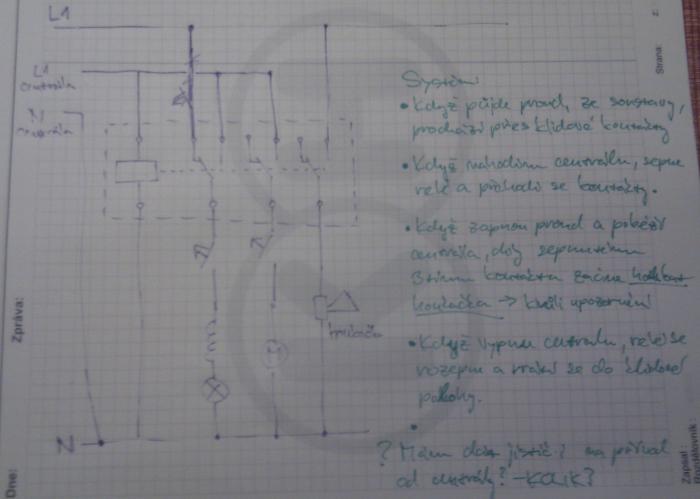 L1
L1
centrála
N
centrála
N
houkačka
Systém
• Když půjde proud ze soustavy,
prochází přes klidové kontakty
• Když nahodím centrálu, sepne
relé a přehodí se kontakty.
• Když zapnou proud a poběží
centrála, díky sepnutému
3tímu kontaktu začne
houkačka → kvůli upozornění
• Když vypnu centrálu, relé se
rozepne a vrátí se do klidové
polohy.
•
? Mám dát jistič? na přívod
od centrály? - KOLIK?
Zpráva:
Dne:
Strana:
Zapsal: